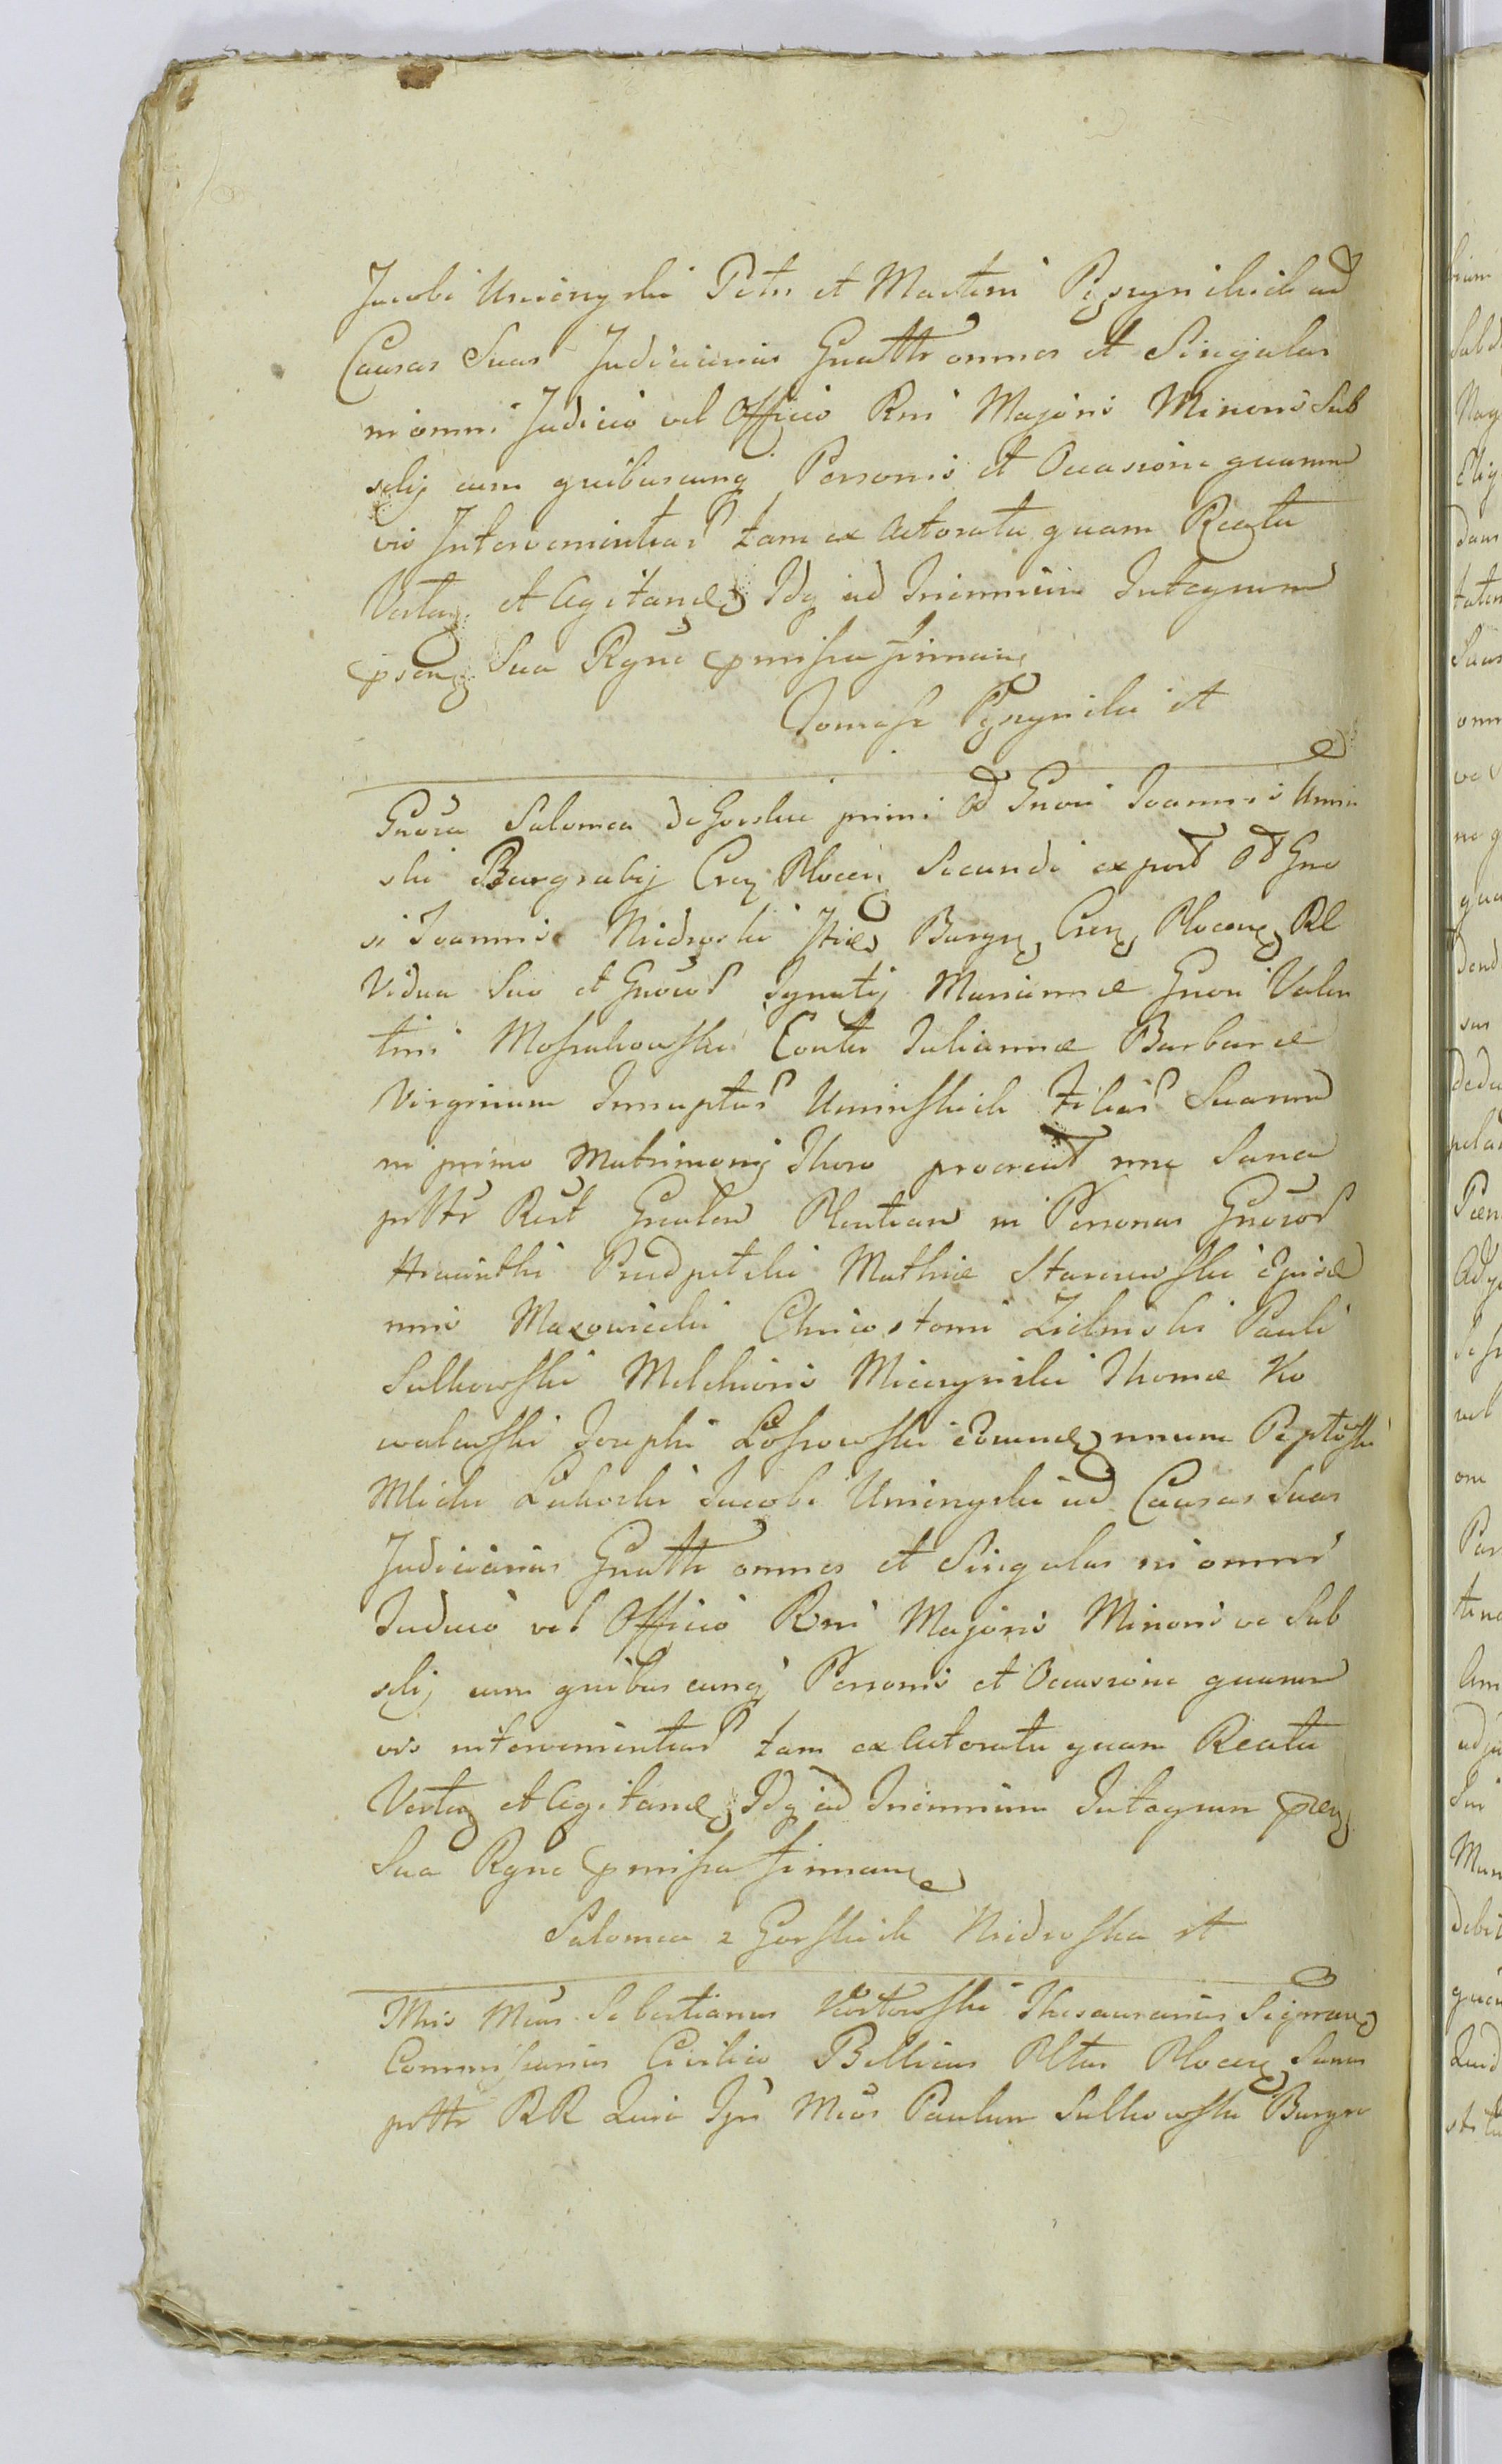 Jacobi Uminyski Petri et Martini Pęszynskich ad
Causas Suas Judiciarias Gnattr omnes et Singulas
in omni Judicio vel Officio Rni Majoris Minoris Sub
selij cum quibuscunq Personis et Occasione quarum
vis Intervenientiar tam ex Actoratu quam Reatu
Verten et Agitand Idq ad Triennium Integrum
psen Sua Rgne pmissa firman
Tomasz Pęszynski st
Gnosa Salomea de Gorskie primi Od Gnosi Joannis Umin
ski Burgrabij Cren Plocen Secundi ex post Od Gno
si Joannis Niedroski Itid Burgr Cren Plocen Rl
Vidua Suo et Gnosor Ignatij Mariannæ Gnosi Valen
tini Mossakowski Contis Juliannæ Barbaræ
Virginum Innuptar Uminskich Filiar Suarum
in primo Matrimonij Thoro procreat nne Sana
psttr Rect Gnalem Plentiam in Personas Gnosor
Hiacinthi Podpetski Mathiæ Starczewski
Mazowiecki Chrisostomi Zielinski Pauli
Sulkowski Melchioris Miczynski Thomæ Ko
walewski Josephi Lossowski unum
Lukoski Jacobi Uminyski ad Causas Suas
Judiciarias Gnattr omnes et Singulas in omni
Judicio vel Officio Rni Majoris Minoris ve Sub
selij cum quibus cunq Personis et Occasione quarum
vis intervenientiar tam ex Actoratu quam Reatu
Verten et Agitand Idq ad Triennium Integrum psen
Sua Rgne pmissa firman
Salomea z Gorskich Niedroska st
Mcus Sebastianus Kortowski Thesaurarius
Commissarius Civilico Bellicus Pltus Plocen Sanus
psttr RR Quia Ipe Mcus Paulum Sulkowski Burgr